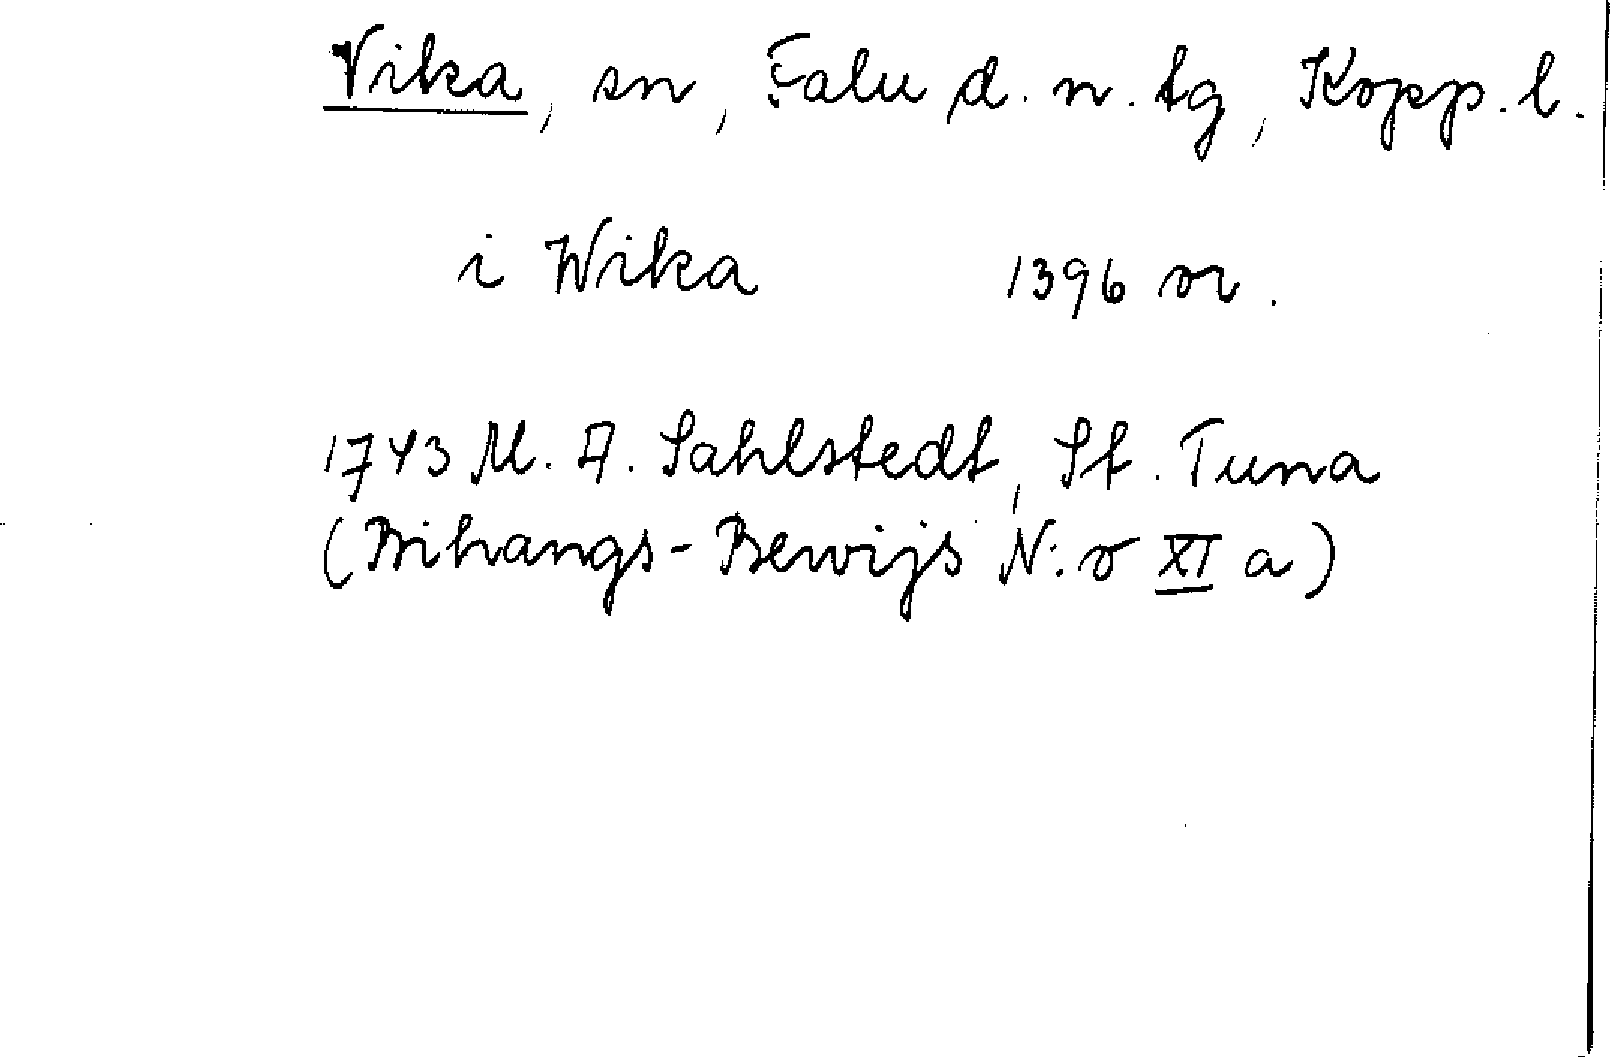 Vika, sn, Falu d. n. tg, Kopp. l.
i Wika 1396 or.
1743 M. A. Sahlstedt, St. Tuna
(Bihangs-Bewijs N:o XI a)